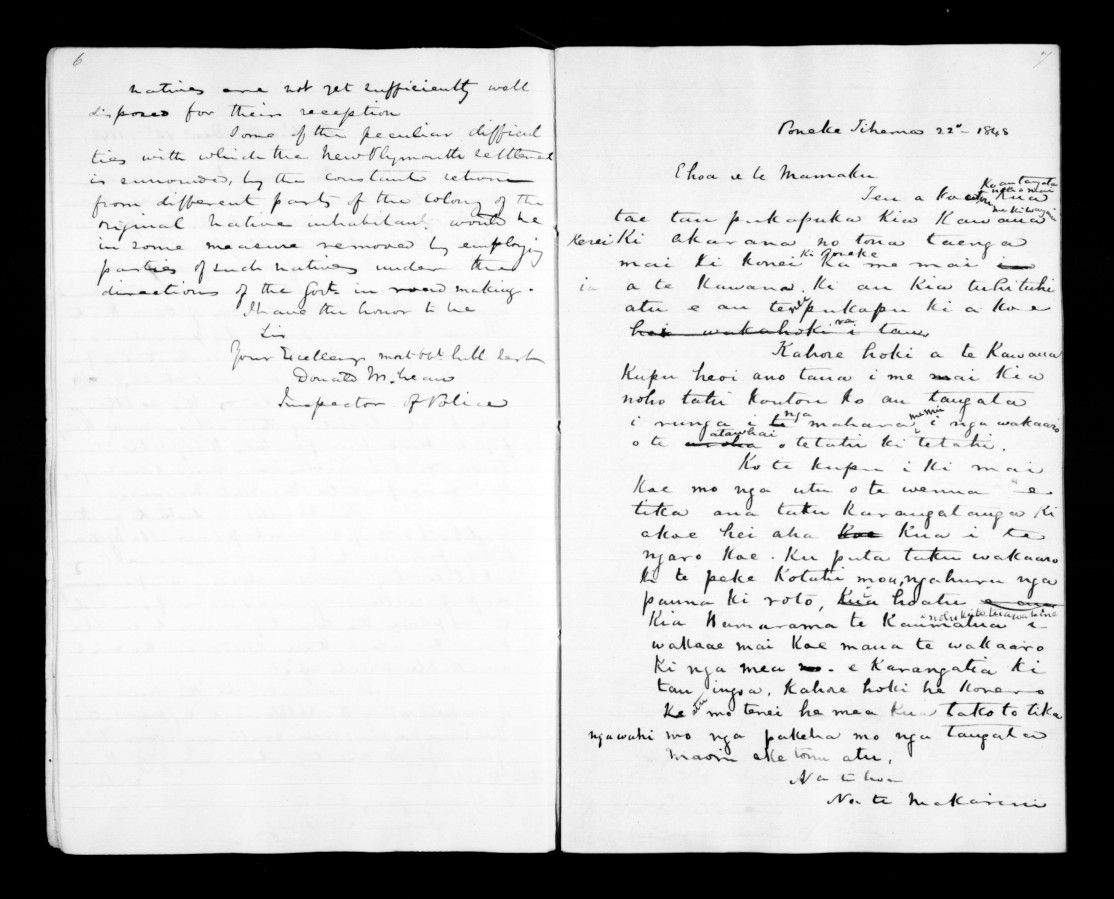 6
natives are not yet sufficiently well
disposed for their reception
Some of the peculiar difficul
ties with which the New Plymouth settlement
is surrounded, by the constant return
from different parts of the Colony of the
original native inhabitants would be
in some measure removed by employing
parties of such natives under the
directions of the Govt in road making.
I have the honor to be
Sir
Your Excellency's most obt hbl sert
Donald McLean
Inspector of Police
7
Poneke Tihema 22d - 1848
Ehoa e te Mamaku
Tena koe kua
tae tau pukapuka kia Kawana
Kerei ki akarana no tona taenga
mai ki konei ki Poneke ka me mai
ia a te Kawana ki au kia tuhituhi
atu e au pukapu ki a koe
hai wakahoki i tau
Kahore hoki a te Kawana
Kupu heoi ano tana i me mai kia
noho tahi koutou ko au tangata
i runga i te nga mahara i nga wakaaro
o te aroha atawhai o tetahi ki tetahi.
Ko te kupu i ki mai
koe mo nga utu o te wenua e
tika ana taku karangatanga ki
a koe hei aha koe kua i te
ngaro koe. Ku puta taku wakaaro
ki te peke Kotahi mou, ngahuru nga
pauna ki roto, kia hoatu e au
Kia Kumarama te Kaumatua i
wakaae mai koe mana te wakaaro
ki nga mea e karangatia ki
tau ingoa, kahore hoki he korero
ke mo tenei he mea kua takoto tika
ngawahi mo nga pakeha mo nga tangata
maori ake tonu atu.
Na to hoa
Na te Makarini